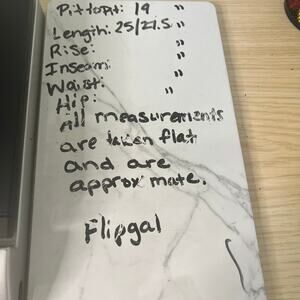 Pit to pit: 19 "
Length: 25/27.5 "
Rise: "
Inseam: "
Waist: "
Hip:
All measurements
are taken flat
and are
approx mate.
Flipgal